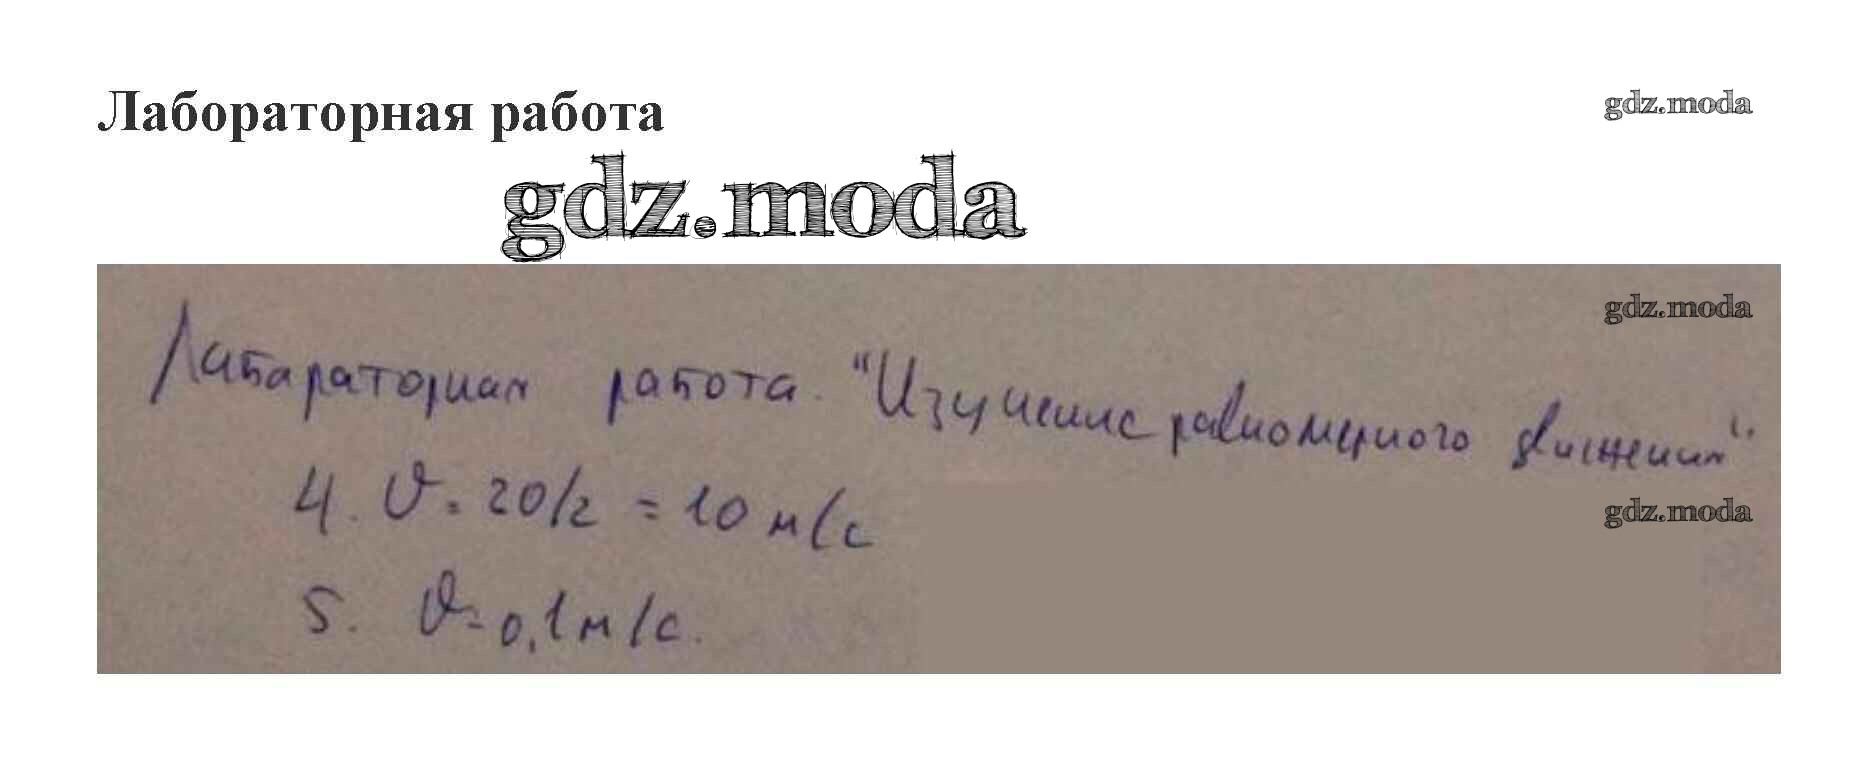 Лабораторная работа
gdz.moda
gdz.moda
gdz.moda
Лабараторная работа. "Изучение равномерного движения".
4. v = 20/2 = 10 м/с
gdz.moda
5. v = 0,1 м/с.